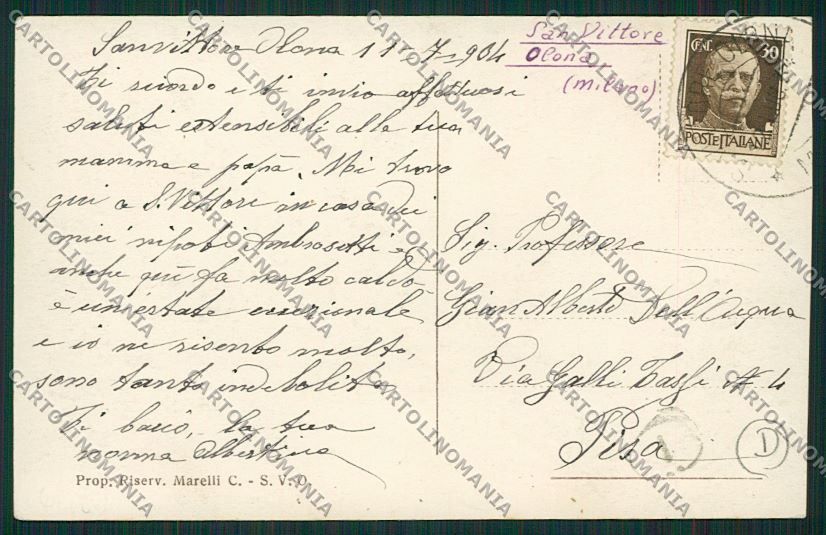 Sanvittore Olona 11-7-904
Ti ricordo e ti invio affettuosi
saluti estensibili alle tua
mamma e papà. Mi trovo
qui a S. Vittore in casa dei
miei nipoti Ambrosetti e
anche qui fa molto caldo
è un'estate eccezionale
e io ne risento molto,
sono tanto indebolita
Ti bacio, la tua
nonna Albertina
Prop. Riserv. Marelli C. - S. V. O.
San Vittore
Olona
(Milano)
CENT. 30
POSTE ITALIANE
Sig. Professore
Gian Alberto Dell'Acqua
Via Galli Tassi N 4
Pisa
D
CARTOLINOMANIA